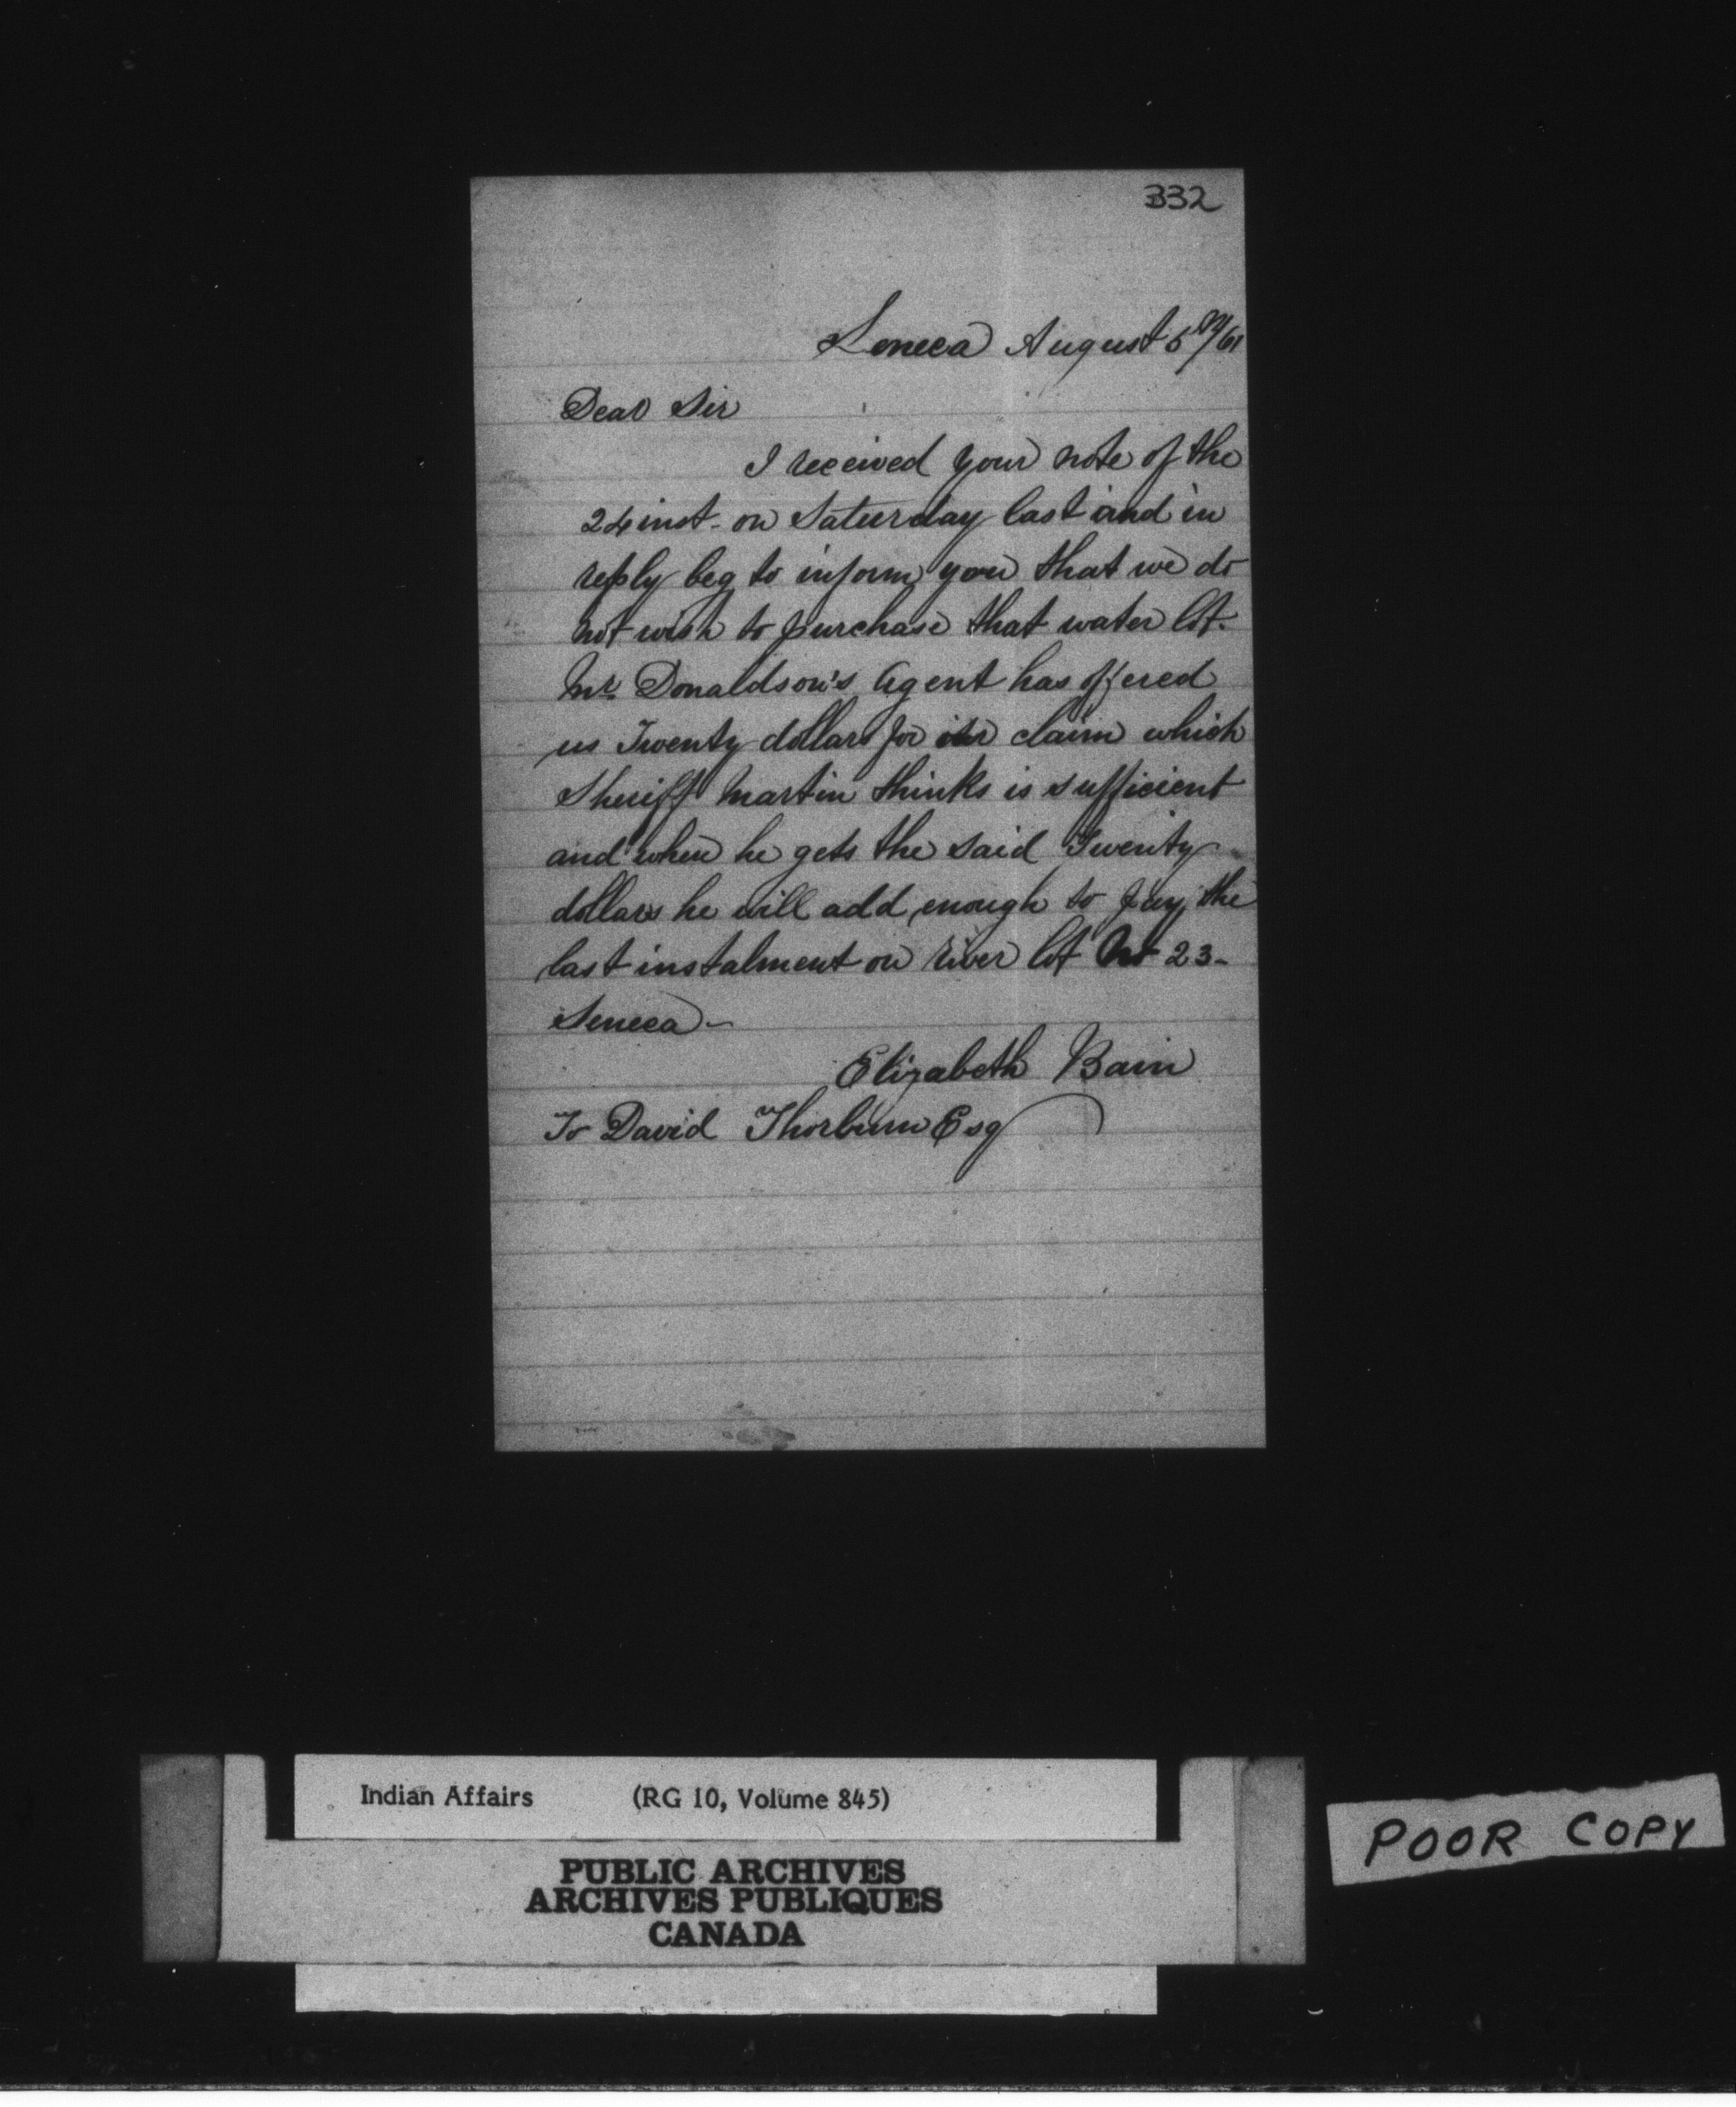 332
Seneca August 5th/61
Dear Sir
I received your note of the
24 inst. on Saturday last and in
reply beg to inform you that we do
not wish to purchase that water lot.
Mr. Donaldson's Agent has offered
us Twenty dollars for our claim which
Sheriff Martin thinks is sufficient
and when he gets the said Twenty
dollars he will add enough to pay the
last instalment on river lot No 23-
Seneca-
Elizabeth Bain
To David Thorburn Esq
Indian Affairs (RG 10, Volume 845)
PUBLIC ARCHIVES
ARCHIVES PUBLIQUES
CANADA
POOR COPY